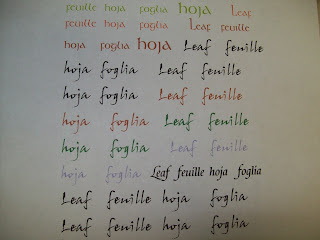 feuille hoja foglia hoja Leaf
feuille hoja foglia Leaf feuille
hoja foglia hoja Leaf feuille
hoja foglia Leaf feuille
hoja foglia Leaf feuille
hoja foglia Leaf feuille
hoja foglia Leaf feuille
hoja foglia Leaf feuille hoja foglia
Leaf feuille hoja foglia
Leaf feuille hoja foglia